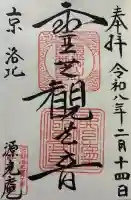 奉拝
令和八年二月十四日
霊芝観世音
京 洛北
源光庵